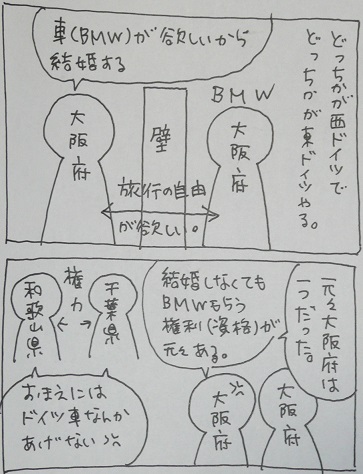 どっちかが西ドイツで
どっちかが東ドイツやる。
車(BMW)が欲しいから
結婚する
BMW
大阪府
壁
大阪府
旅行の自由
が欲しい。
元々大阪府は
一つだった。
結婚しなくても
BMWもらう
権利(資格)が
元々ある。
大阪府
大阪府
千葉県
権力
和歌山県
おまえには
ドイツ車なんか
あげない